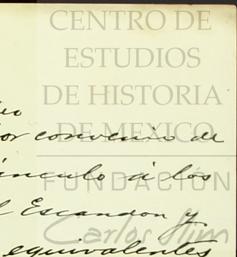 CENTRO DE
ESTUDIOS
DE HISTORIA
DE MEXICO
FUNDACIÓN
Carlos Slim
por convenio de
vínculo á los
Escandon y
equivalentes